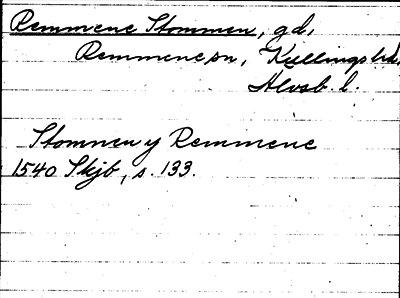 Remmene Stommen, gd,
Remmene sn, Kullings hd,
Älvsb. l.
Stomnen y Remmene
1540 Skjb, s. 133.